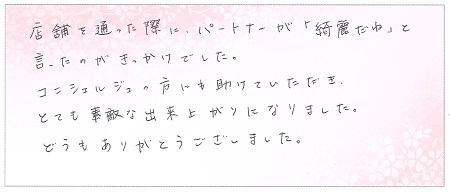 店舗を通った際に、パートナーが「綺麗だね」と
言ったのがきっかけでした。
コンシェルジュの方にも助けていただき、
とても素敵な出来上がりになりました。
どうもありがとうございました。